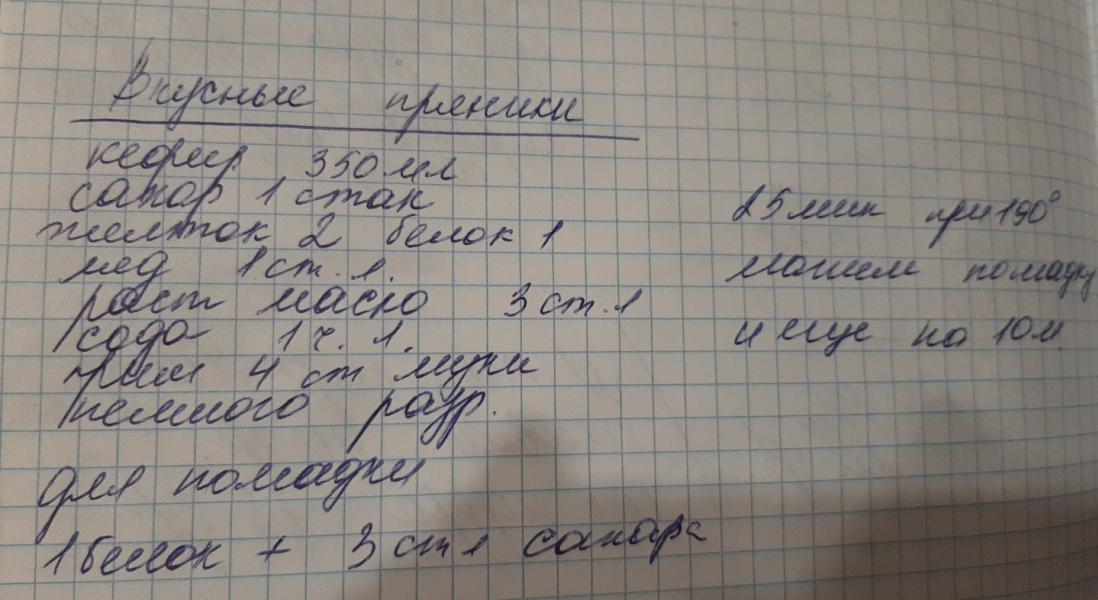 Вкусные пряники
кефир 350 мл
сахар 1 стак
желток 2 белок 1
мед 1 ст. л.
раст масло 3 ст. л
сода 1 ч. л.
прим 4 ст муки
немного разр.
для помадки
1 белок + 3 ст л сахара
25 мин при 190°
мажем помадку
и еще на 10 м